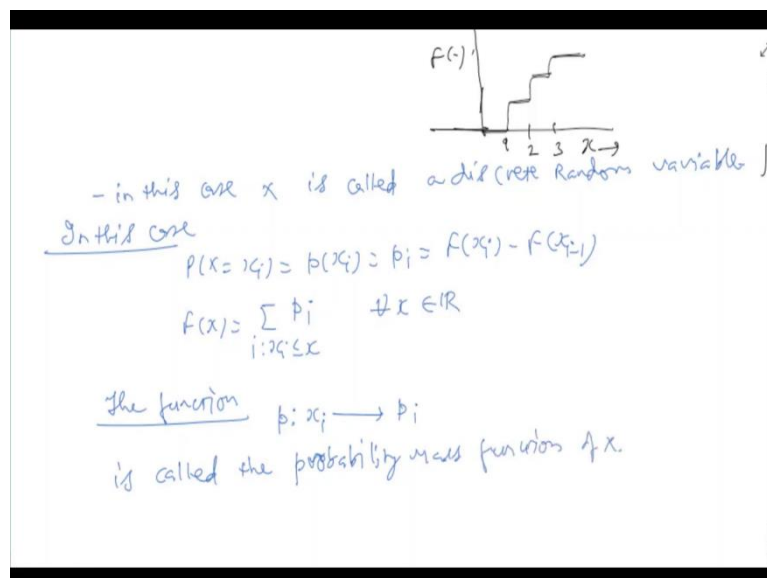 F(·)
1 2 3 x→
- in this case x is called a discrete Random variable
In this case
P(X = xi) = p(xi) = pi = F(xi) - F(xi-1)
F(x) = Σ pi ∀ x ∈ ℝ
i: xi ≤ x
The function p: xi ⟶ pi
is called the probability mass function of x.